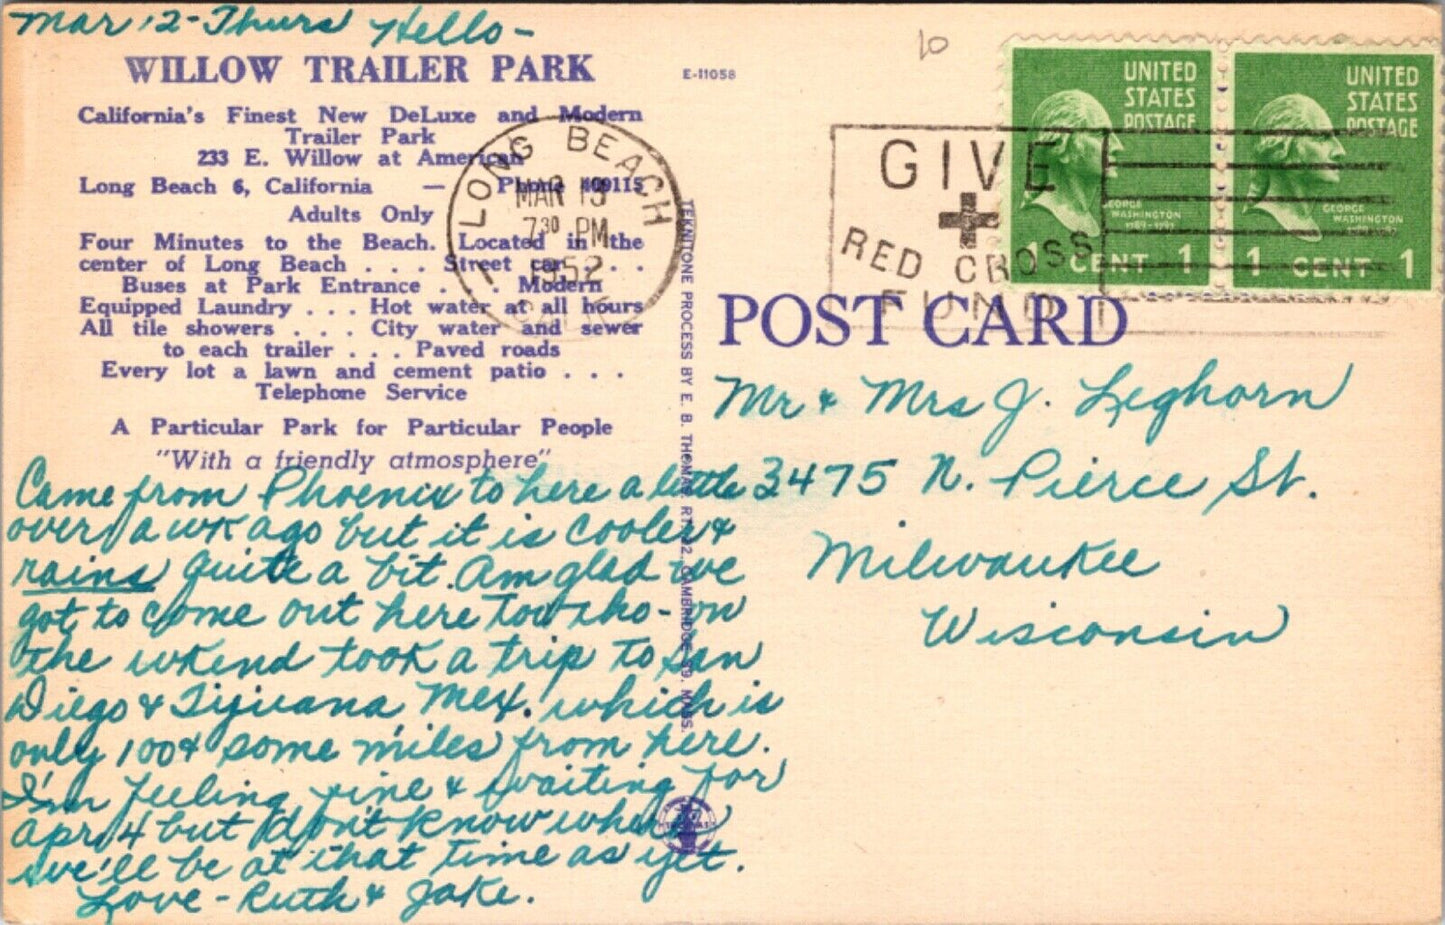 Mar 12-Thurs Hello-
WILLOW TRAILER PARK
California's Finest New DeLuxe and Modern
Trailer Park
233 E. Willow at American
Long Beach 6, California — Phone 409115
Adults Only
Four Minutes to the Beach. Located in the
center of Long Beach . . . Street cars . . .
Buses at Park Entrance . . . Modern
Equipped Laundry . . . Hot water at all hours
All tile showers . . . City water and sewer
to each trailer . . . Paved roads
Every lot a lawn and cement patio . . .
Telephone Service
A Particular Park for Particular People
"With a friendly atmosphere"
Came from Phoenix to here a little
over a wk ago but it is cooler &
rains quite a bit. Am glad we
got to come out here too tho-on
the wkend took a trip to San
Diego & Tijuana Mex. which is
only 100 & some miles from here.
I'm feeling fine & waiting for
Apr 4 but don't know where
we'll be at that time as yet.
Love - Ruth & Jake.
E-11058
TEKNITONE PROCESS BY E. B. THOMAS, RT. 22, CAMBRIDGE 39, MASS.
LONG BEACH
MAR 13
7 30 PM
1952
CALIF.
10
GIVE
RED CROSS
FUND
UNITED
STATES
POSTAGE
GEORGE
WASHINGTON
1789-1797
1 CENT 1
UNITED
STATES
POSTAGE
GEORGE
WASHINGTON
1 CENT 1
POST CARD
Mr & Mrs J. Leghorn
3475 N. Pierce St.
Milwaukee
Wisconsin